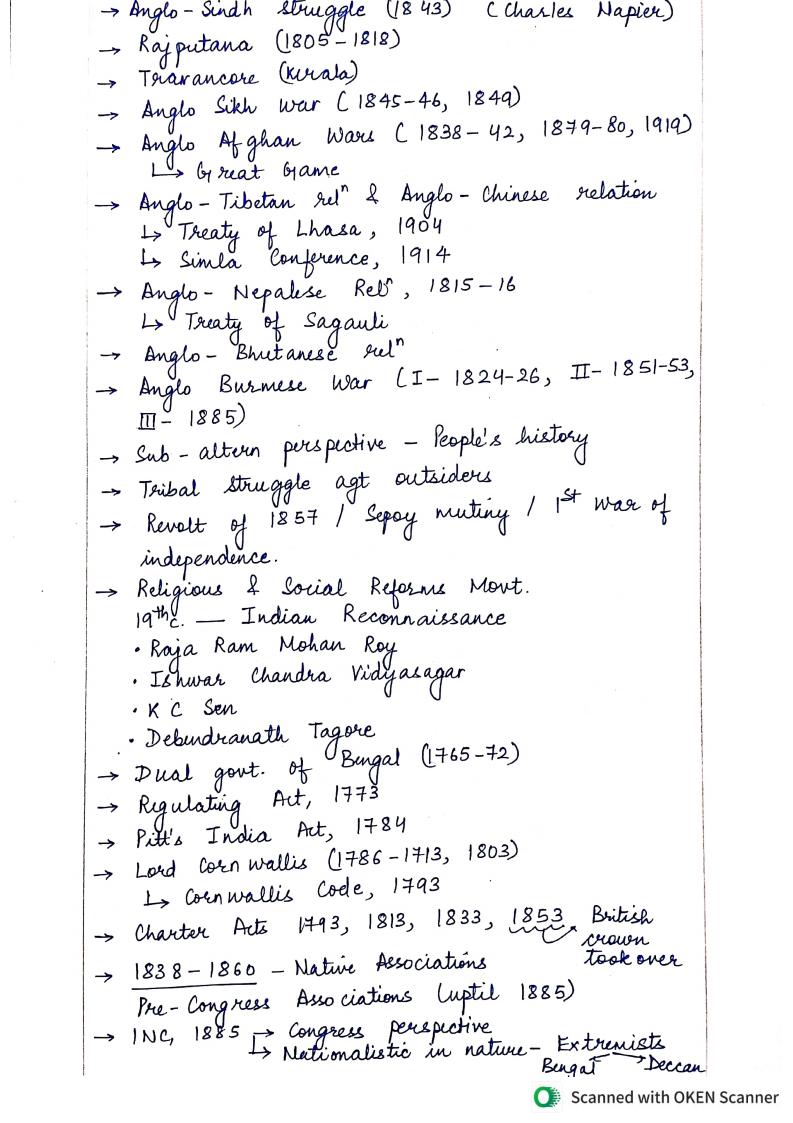 → Anglo-Sindh struggle (1843) (Charles Napier)
→ Rajputana (1805-1818)
→ Travancore (Kerala)
→ Anglo Sikh War (1845-46, 1849)
→ Anglo Afghan Wars (1838-42, 1879-80, 1919)
↳ Great Game
→ Anglo-Tibetan relⁿ & Anglo-Chinese relation
↳ Treaty of Lhasa, 1904
↳ Simla Conference, 1914
→ Anglo-Nepalese Relⁿ, 1815-16
↳ Treaty of Sagauli
→ Anglo-Bhutanese relⁿ
→ Anglo Burmese War (I- 1824-26, II- 1851-53,
III- 1885)
→ Sub-altern perspective - People's history
→ Tribal struggle agt outsiders
→ Revolt of 1857 / Sepoy mutiny / 1st war of
independence.
→ Religious & Social Reforms Movt.
19th c. — Indian Reconnaissance
• Raja Ram Mohan Roy
• Ishwar Chandra Vidyasagar
• K C Sen
• Debendranath Tagore
→ Dual govt. of Bengal (1765-72)
→ Regulating Act, 1773
→ Pitt's India Act, 1784
→ Lord Cornwallis (1786-1713, 1803)
↳ Cornwallis Code, 1793
→ Charter Acts 1793, 1813, 1833, 1853 British
crown
took over
→ 1838-1860 - Native Associations
Pre-Congress Associations (uptil 1885)
→ INC, 1885 → Congress perspective
↳ Nationalistic in nature - Extremists
Bengal Deccan
Scanned with OKEN Scanner